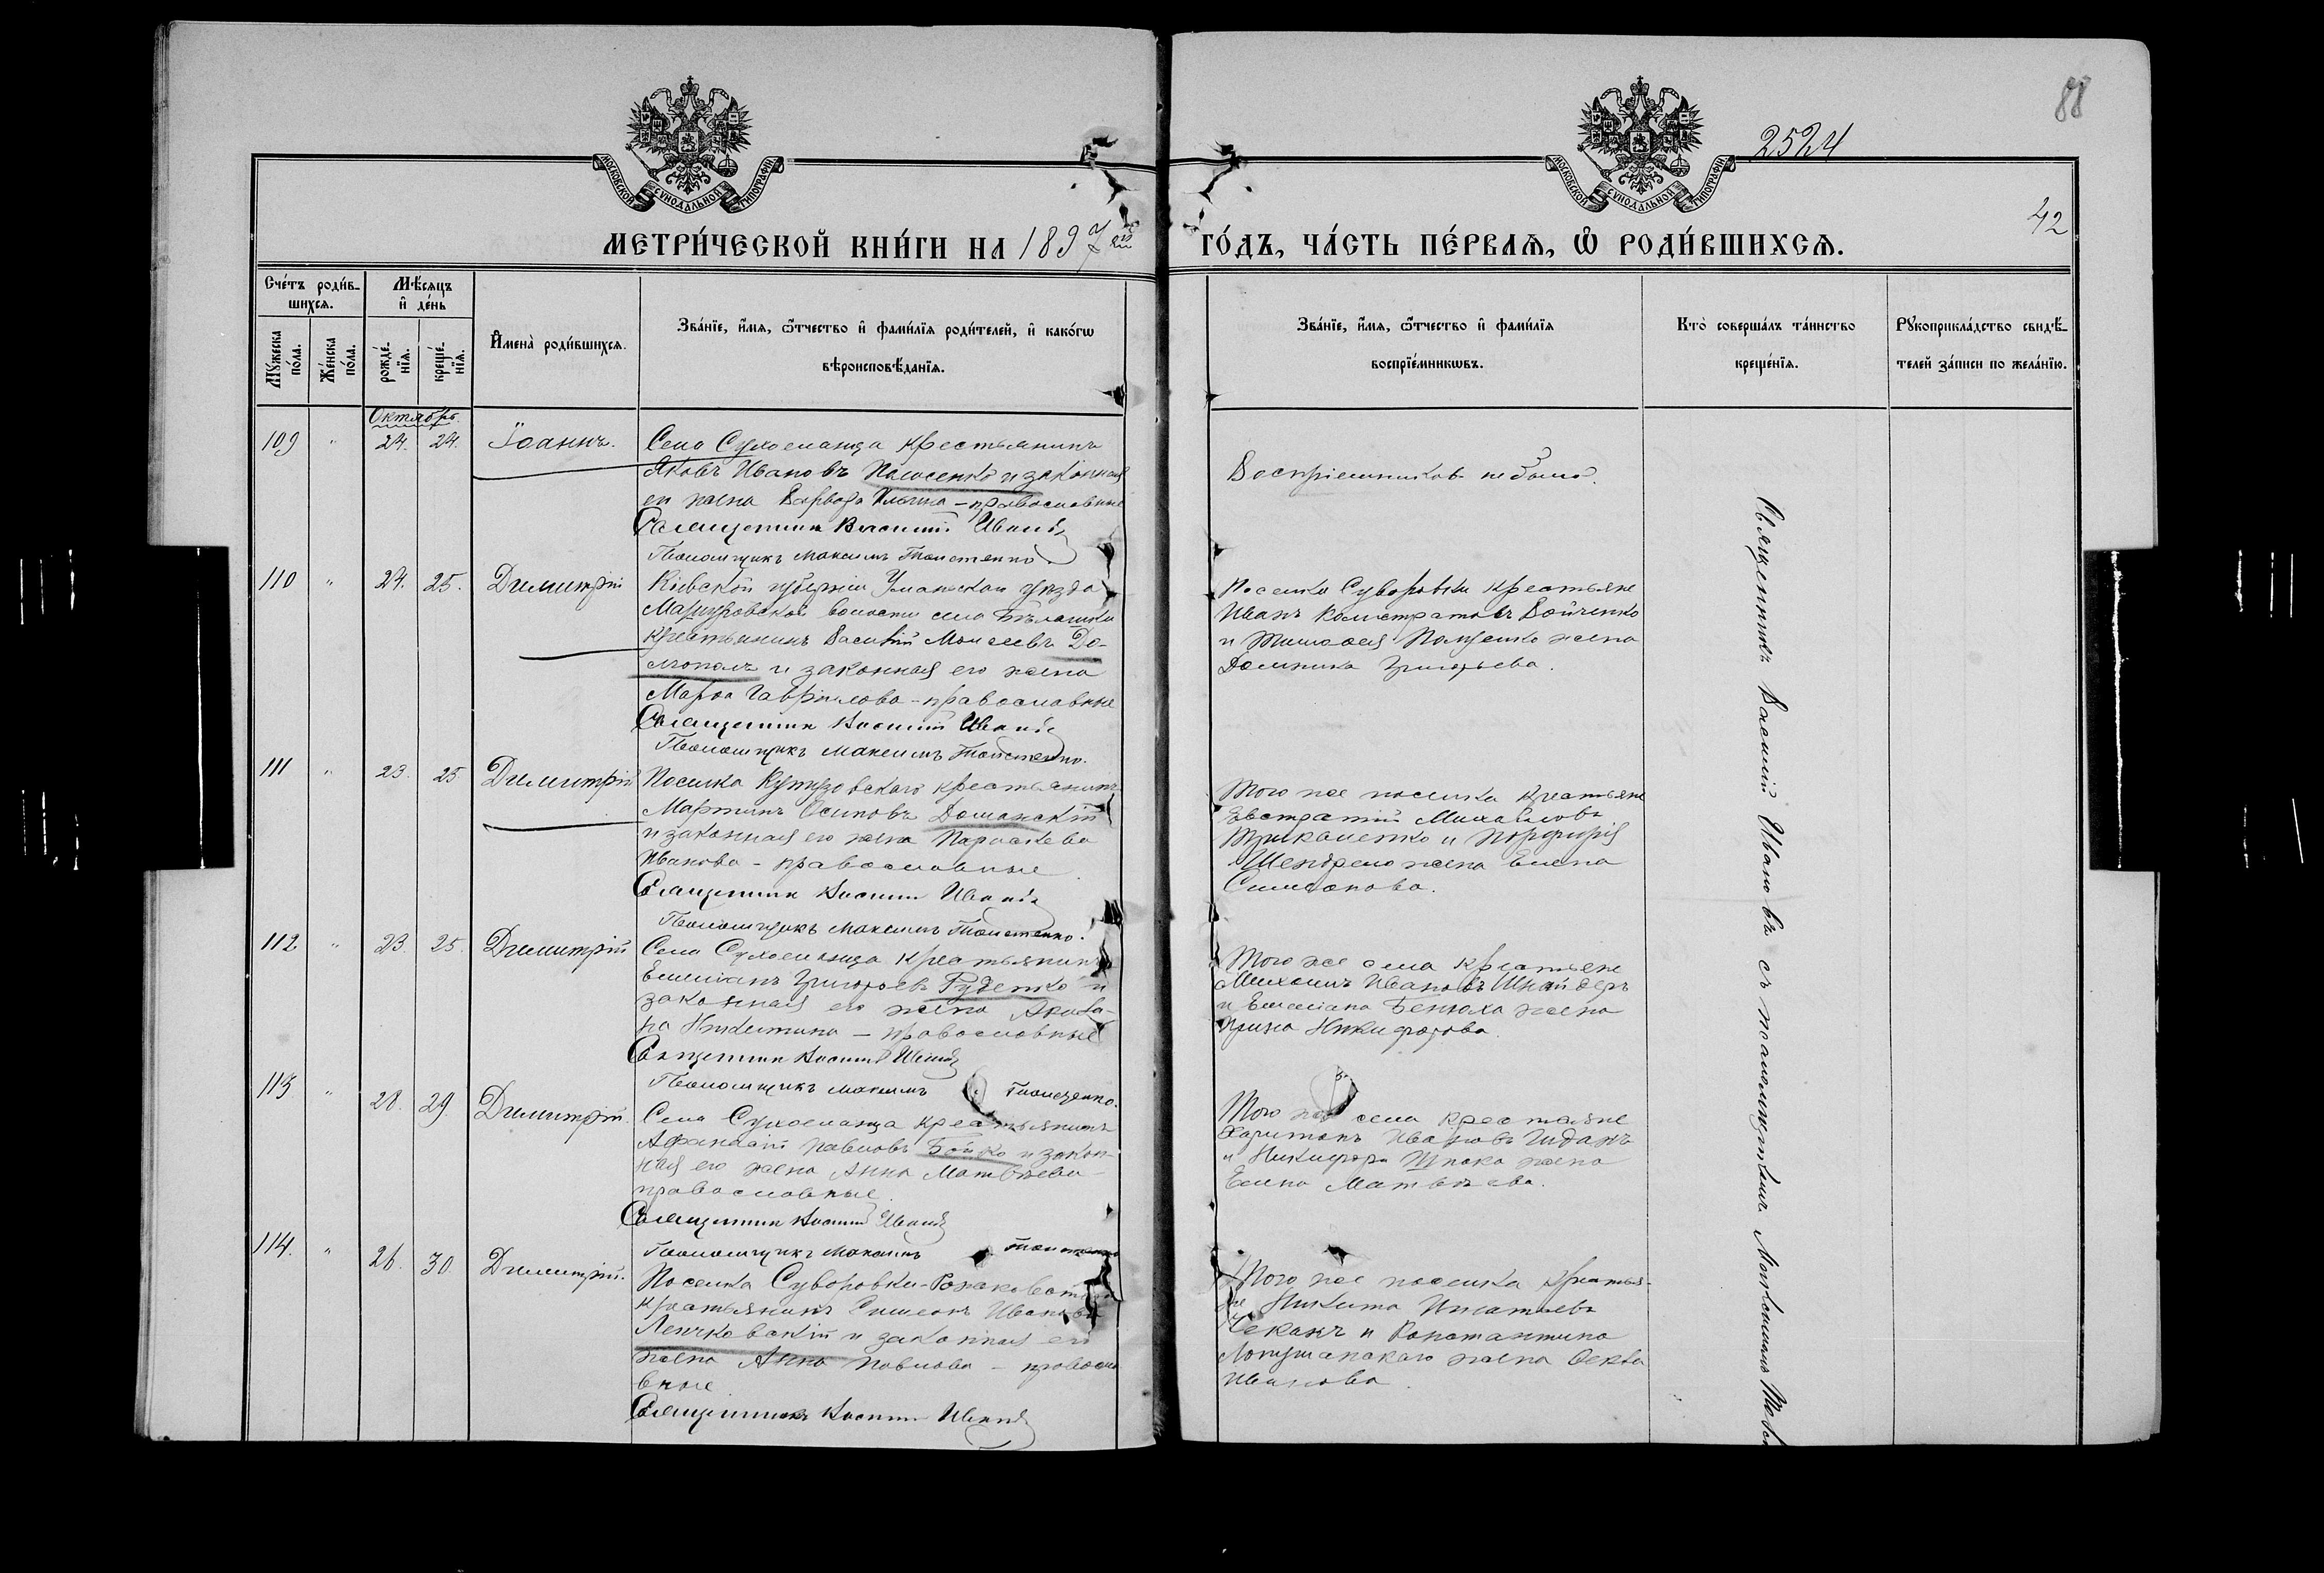 88
2524
42
МОСКОВСКОЙ СѴНОДАЛЬНОЙ ТИПОГРАФІИ
МОСКОВСКОЙ СѴНОДАЛЬНОЙ ТИПОГРАФІИ
МЕТРИ́ЧЕСКОЙ КНИ́ГИ НА 1897 й ГО́ДЪ, ЧА́СТЬ ПЕ́РВАѦ, Ѿ РОДИ́ВШИХСѦ.
Сче́тъ роди́в-
шихсѧ.
Мѣ́сѧцъ
и҆ де́нь
Мꙋжеска
по́ла.
Же́нска
по́ла.
рожде́-
нїѧ.
креще́-
нїѧ.
И҆мена̀ роди́вшихсѧ.
Зва́нїе, и҆́мѧ, ѻ҆́тчество и҆ фами́лїѧ роди́телей, и҆ како́гѡ
вѣроисповѣ́данїѧ.
Зва́нїе, и҆́мѧ, ѻ҆́тчество и҆ фами́лїѧ
воспрїе́мникѡвъ.
Кто̀ соверша́лъ та́инство
креще́нїѧ.
Рꙋкоприкла́дство свидѣ́-
телей за́писи по жела́нїю.
Октябрь
109 " 24. 24. Іоаннъ.
Села Сухоеланца крестьянинъ
Яковъ Ивановъ и законная
ея жена Варвара - православные
Священникъ Василій Ивановъ
Псаломщикъ Максимъ Толстенко
Воспріемниковъ не было.
110 " 24. 25. Димитрій
Кіевской губерніи Уманскаго уѣзда
волости села
крестьянинъ Василій Моисеевъ До-
и законная его жена
Марѳа Гаврилова - православные
Священникъ Василій Ивановъ
Псаломщикъ Максимъ Толстенко.
Поселка Суворовки крестьяне
Иванъ Калистратовъ Бойченко
и жена
Домника Григорьева.
111 " 23. 25 Димитрій
Поселка Кутузовскаго крестьянинъ
Мартинъ Осиповъ Доманскій
и законная его жена Параскева
Иванова - православные
Священникъ Василій Ивановъ
Псаломщикъ Максимъ Толстенко.
Того же поселка крестьяне
Евстратій Михайловъ
и Порфирія
жена Елена
Симеонова.
112 " 23. 25. Димитрій
Села Сухоеланца крестьянинъ
Емеліанъ Григорьевъ Руденко и
законная его жена Акили-
на Никитина - православные
Священникъ Василій Ивановъ
Псаломщикъ Максимъ Толстенко.
Того же села крестьяне
Михаилъ Ивановъ Шнайдеръ
и Емеліана жена
Ирина Никифорова.
113 " 28. 29. Димитрій.
Села Сухоеланца крестьянинъ
Аѳанасій Павловъ Бойко и закон-
ная его жена Анна Матвѣева -
православные.
Священникъ Василій Ивановъ
Псаломщикъ Максимъ Толстенко
Того же села крестьяне
Харитонъ Ивановъ
и Никифора Шпака жена
Елена Матвѣева.
114. " 26. 30. Димитрій.
Поселка Суворовки-
крестьянинъ Симеонъ Ивановъ
и законная его
жена Анна Павлова - правосла-
вные
Священникъ Василій Ивановъ
Того же поселка крестья-
не Никита Игнатьевъ
Чеканъ и Константина
жена Ѳекла
Иванова
Священникъ Василій Ивановъ съ псаломщикомъ Максимомъ